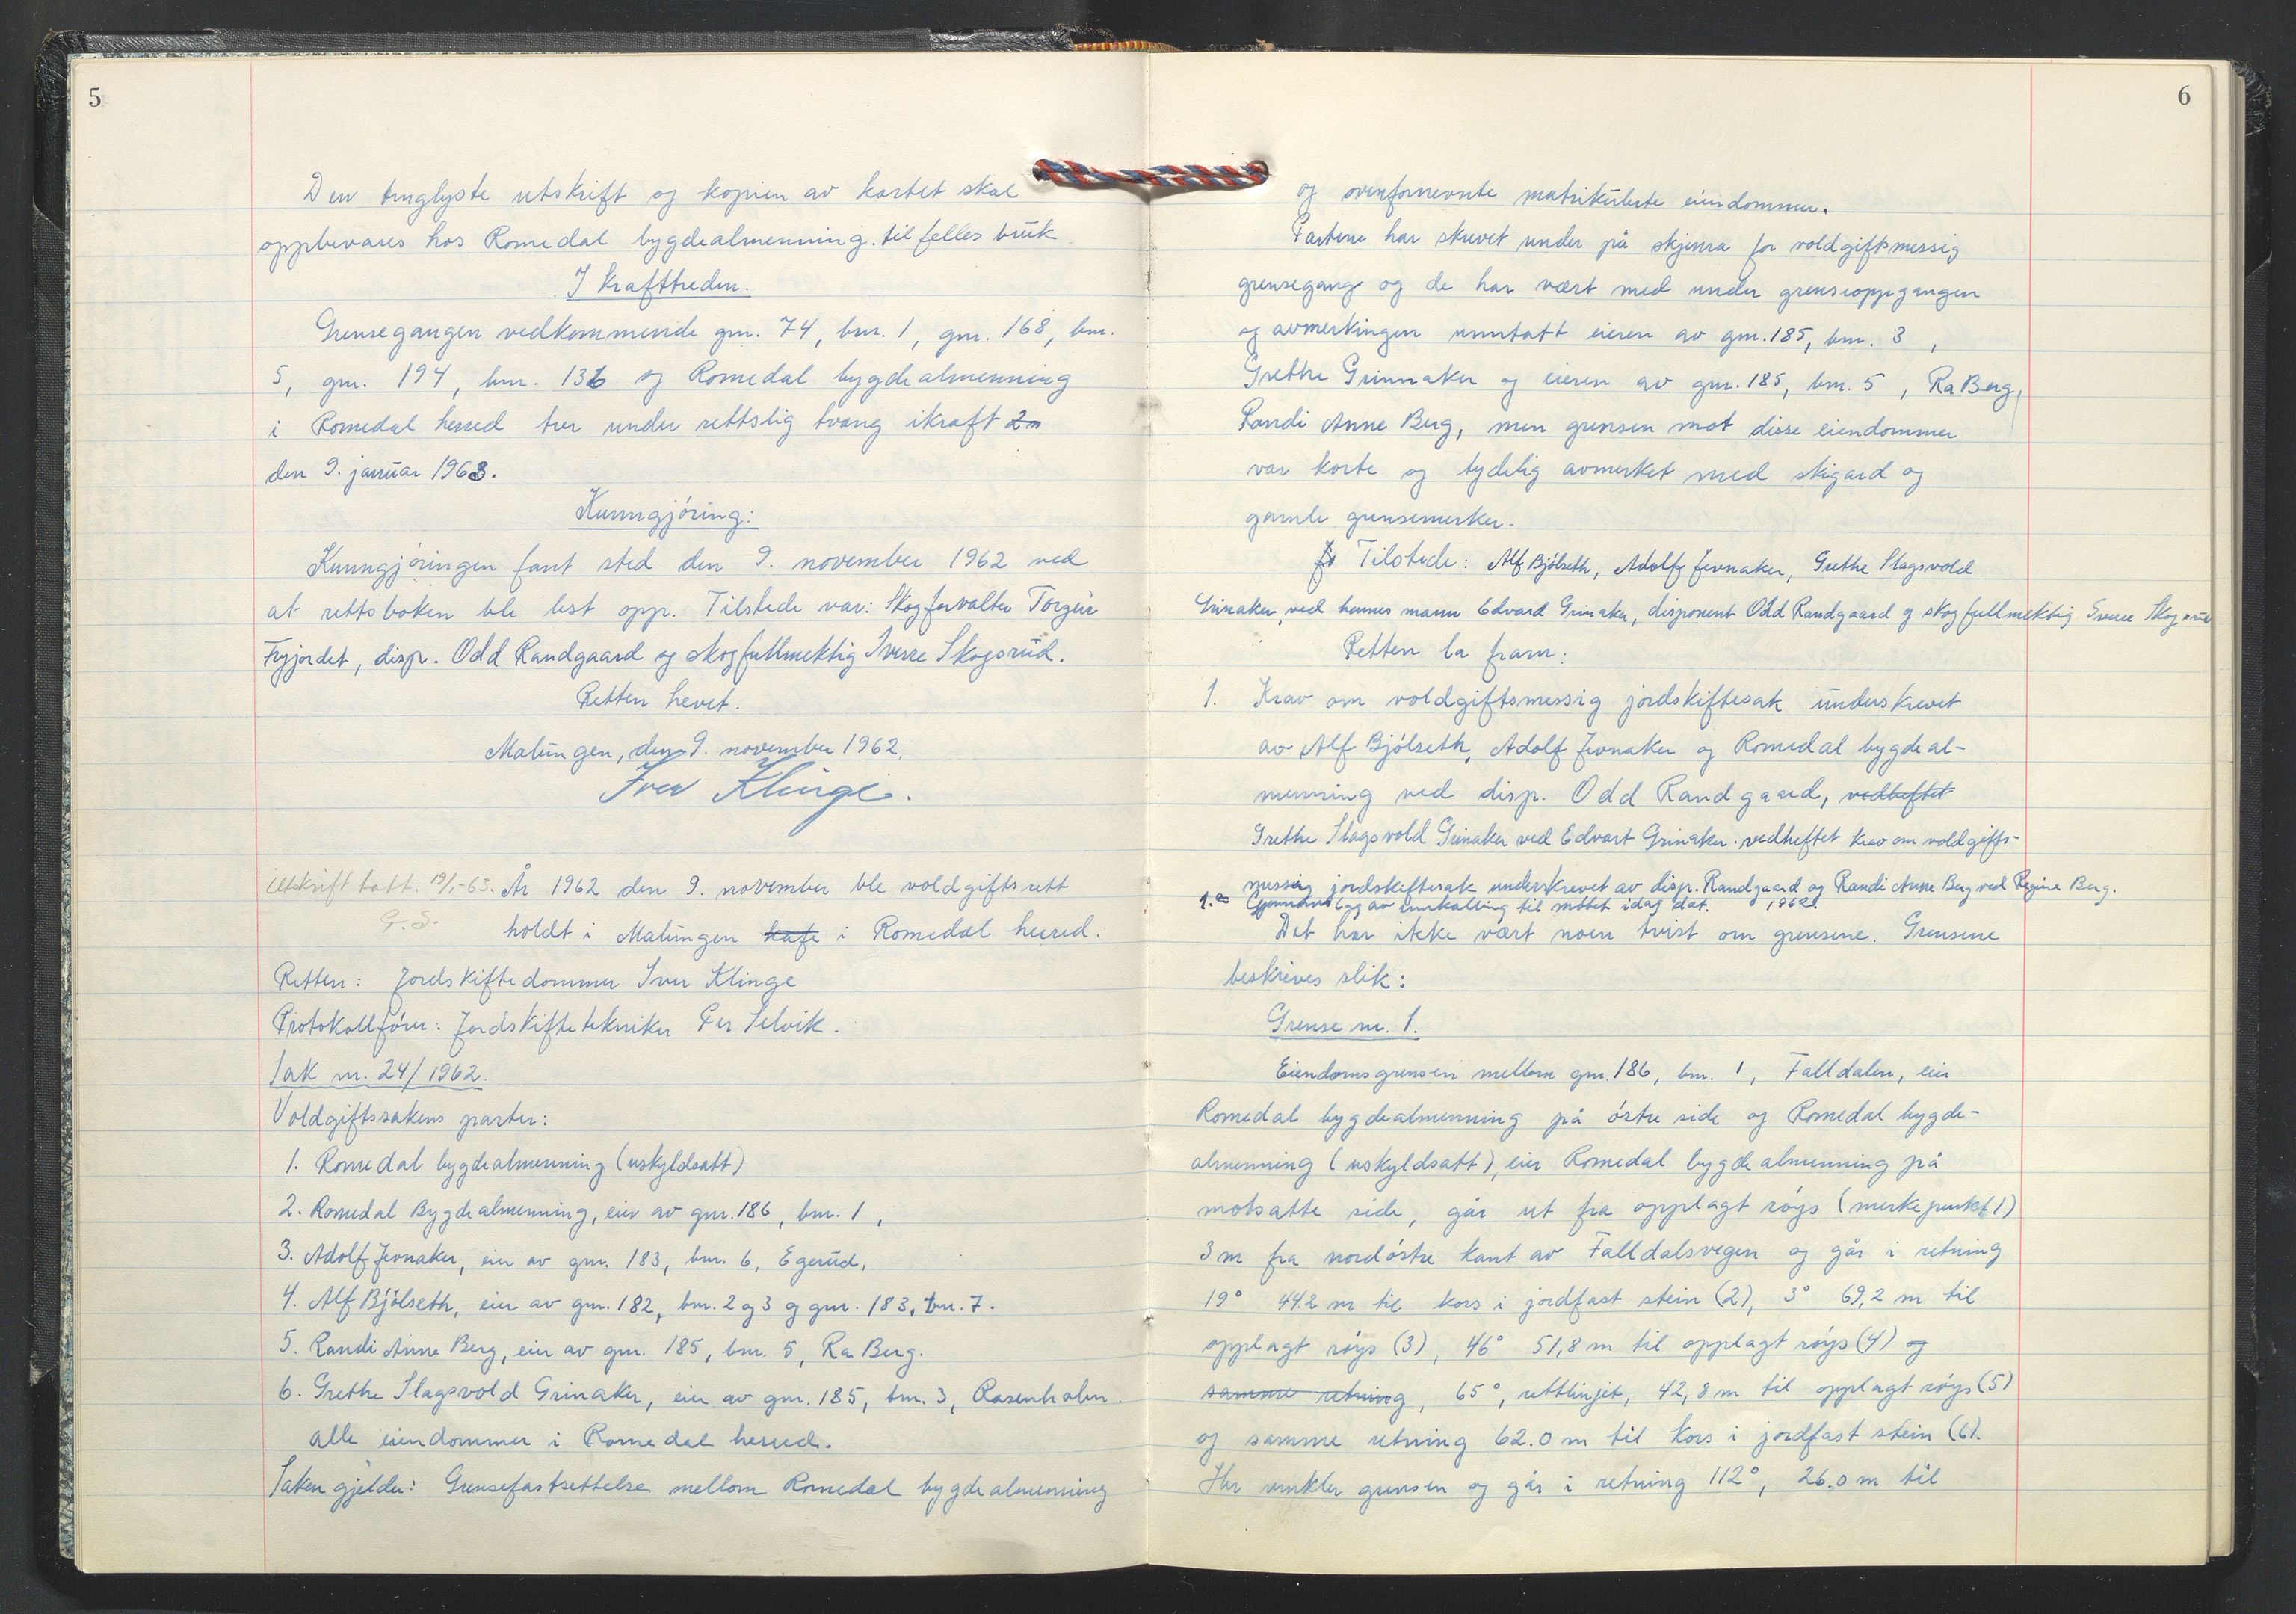 5
Den tinglyste utskrift og kopien av kartet skal
oppbevares hos Romedal bygdealmenning til felles bruk
I krafttreden.
Grensegangen vedkommende gnr. 74, bnr. 1, gnr. 168, bnr.
5, gnr. 194, bnr. 136 og Romedal bygdealmenning
i Romedal herred trer under rettslig tvang ikraft
den 9. januar 1963.
Kunngjöring:
Kunngjöringen fant sted den 9. november 1962 ved
at rettsboken ble lest opp. Tilstede var: Skogforvalter Torgeir
Fryjordet, disp. Odd Randgaard og skogfullmektig Sverre Skogsrud.
Retten hevet.
Malungen, den 9. november 1962.
Iver Klinge.
Utskrift tatt. 19/1-63. År 1962 den 9. november ble voldgiftsrett
G.S.
holdt i Malungen kafe i Romedal herred.
Retten: Jordskiftedommer Iver Klinge
Protokollförer: Jordskiftetekniker Per Selvik.
Sak nr. 24/1962
Voldgiftssakens parter:
1. Romedal bygdealmenning (uskyldsatt)
2. Romedal Bygdealmenning, eier av gnr. 186, bnr. 1,
3. Adolf Jevnaker, eier av gnr. 183, bnr. 6, Egerud,
4. Alf Bjölseth, eier av gnr. 182, bnr. 2 og 3 og gnr. 183, bnr. 7.
5. Randi Anne Berg, eier av gnr. 185, bnr. 5, Ra Berg.
6. Grethe Slagsvold Grinaker, eier av gnr. 185, bnr. 3, Rasenholm
alle eiendommer i Romedal herred.
Saken gjelder: Grensefastsettelse mellom Romedal bygdealmenning
6
og ovenfornevnte matrikulerte eiendommer.
Partene har skrevet under på skjema for voldgiftsmessig
grensegang og de har vært med under grenseoppgangen
og avmerkingen unntatt eieren av gnr. 185, bnr. 3,
Grethe Grinnaker og eieren av gnr. 185, bnr. 5, Ra Berg,
Randi Anne Berg, men grensen mot disse eiendommer
var korte og tydelig avmerket med skigard og
gamle grensemerker.
Tilstede: Alf Bjölseth, Adolf Jevnaker, Grethe Slagsvold
Grinaker, ved hennes mann Edvard Grinaker, disponent Odd Randgaard og skogfullmektig Sverre Skogsrud
Retten la fram:
1. Krav om voldgiftsmessig jordskiftesak underskrevet
av Alf Bjölseth, Adolf Jevnaker og Romedal bygdeal-
menning ved disp. Odd Randgaard, vedheftet
Grethe Slagsvold Grinaker ved Edvart Grinaker. vedheftet krav om voldgifts-
messig jordskiftesak underskrevet av disp. Randgaard og Randi Anne Berg ved Regine Berg.
1.a Gjennomslag av innkalling til møtet idag dat. 1962.
Det har ikke vært noen tvist om grensene. Grensene
beskrives slik:
Grense nr. 1.
Eiendomsgrensen mellom gnr. 186, bnr. 1, Falldalen, eier
Romedal bygdealmenning på östre side og Romedal bygde-
almenning (uskyldsatt), eier Romedal bygdealmenning på
motsatte side, går ut fra opplagt röys (merkepunkt 1)
3 m fra nordöstre kant av Falldalsvegen og går i retning
19° 44.2 m til kors i jordfast stein (2), 3° 69,2 m til
opplagt röys (3), 46° 51,8 m til opplagt röys (4) og
samme retning, 65°, rettlinjet, 42,8 m til opplagt röys (5)
og samme retning 62.0 m til kors i jordfast stein (6).
Her vinkler grensen og går i retning 112°, 26.0 m til